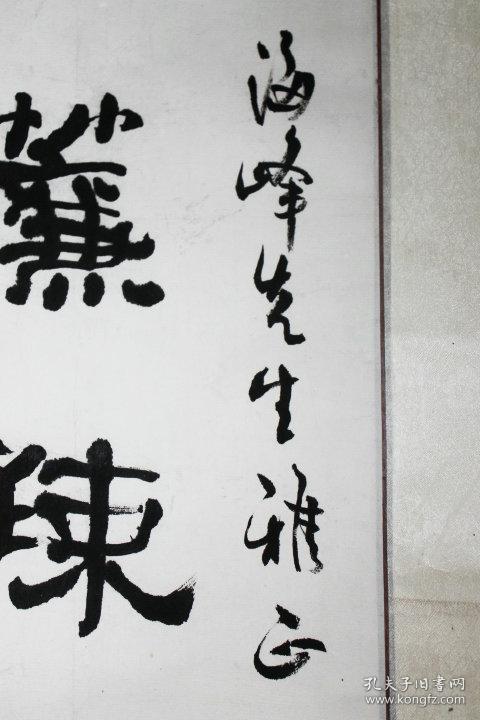 海峰先生雅正
孔夫子旧书网
www.kongfz.com